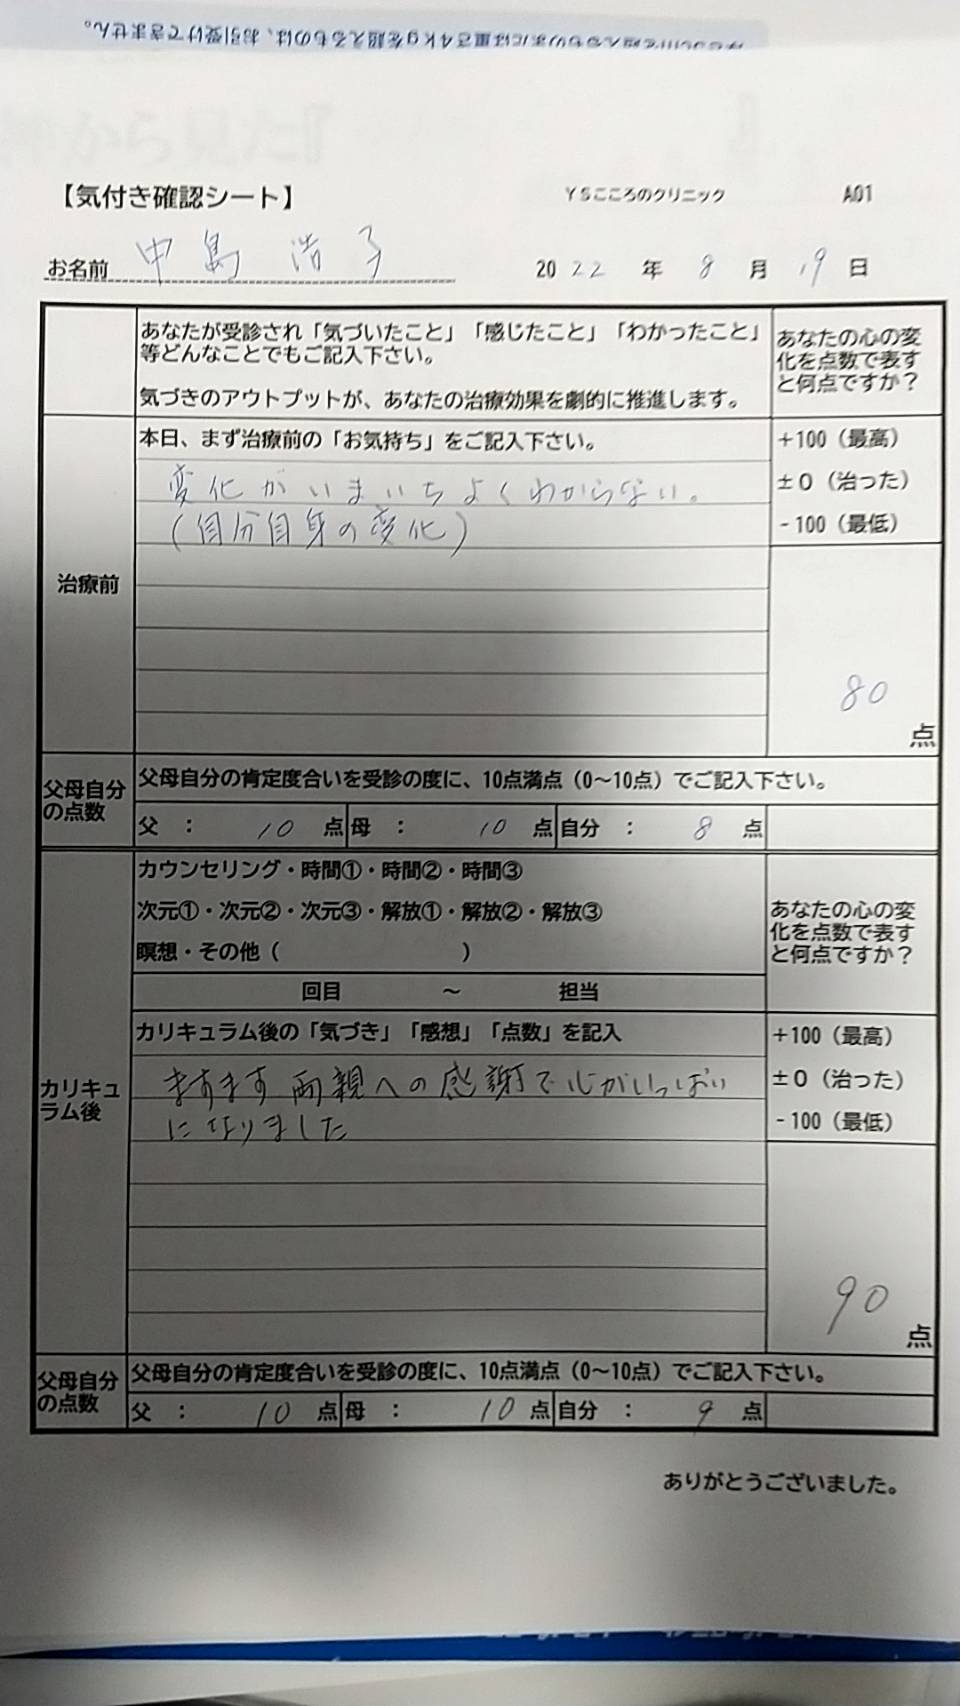 重さ4kgを超えるものは、お引受けできません。
【気付き確認シート】 YSこころのクリニック A01
お名前 中島 浩子 2022年 8月 19日
あなたが受診され「気づいたこと」「感じたこと」「わかったこと」
等どんなことでもご記入下さい。
気づきのアウトプットが、あなたの治療効果を劇的に推進します。
あなたの心の変
化を点数で表す
と何点ですか？
治療前
本日、まず治療前の「お気持ち」をご記入下さい。
変化がいまいちよくわからない。
(自分自身の変化)
+100（最高）
±0（治った）
-100（最低）
80点
父母自分
の点数
父母自分の肯定度合いを受診の度に、10点満点（0～10点）でご記入下さい。
父 ： 10 点 母 ： 10 点 自分 ： 8 点
カリキュ
ラム後
カウンセリング・時間①・時間②・時間③
次元①・次元②・次元③・解放①・解放②・解放③
瞑想・その他（ ）
回目 ～ 担当
あなたの心の変
化を点数で表す
と何点ですか？
カリキュラム後の「気づき」「感想」「点数」を記入
ますます両親への感謝で心がいっぱい
になりました
+100（最高）
±0（治った）
-100（最低）
90点
父母自分
の点数
父母自分の肯定度合いを受診の度に、10点満点（0～10点）でご記入下さい。
父 ： 10 点 母 ： 10 点 自分 ： 9 点
ありがとうございました。